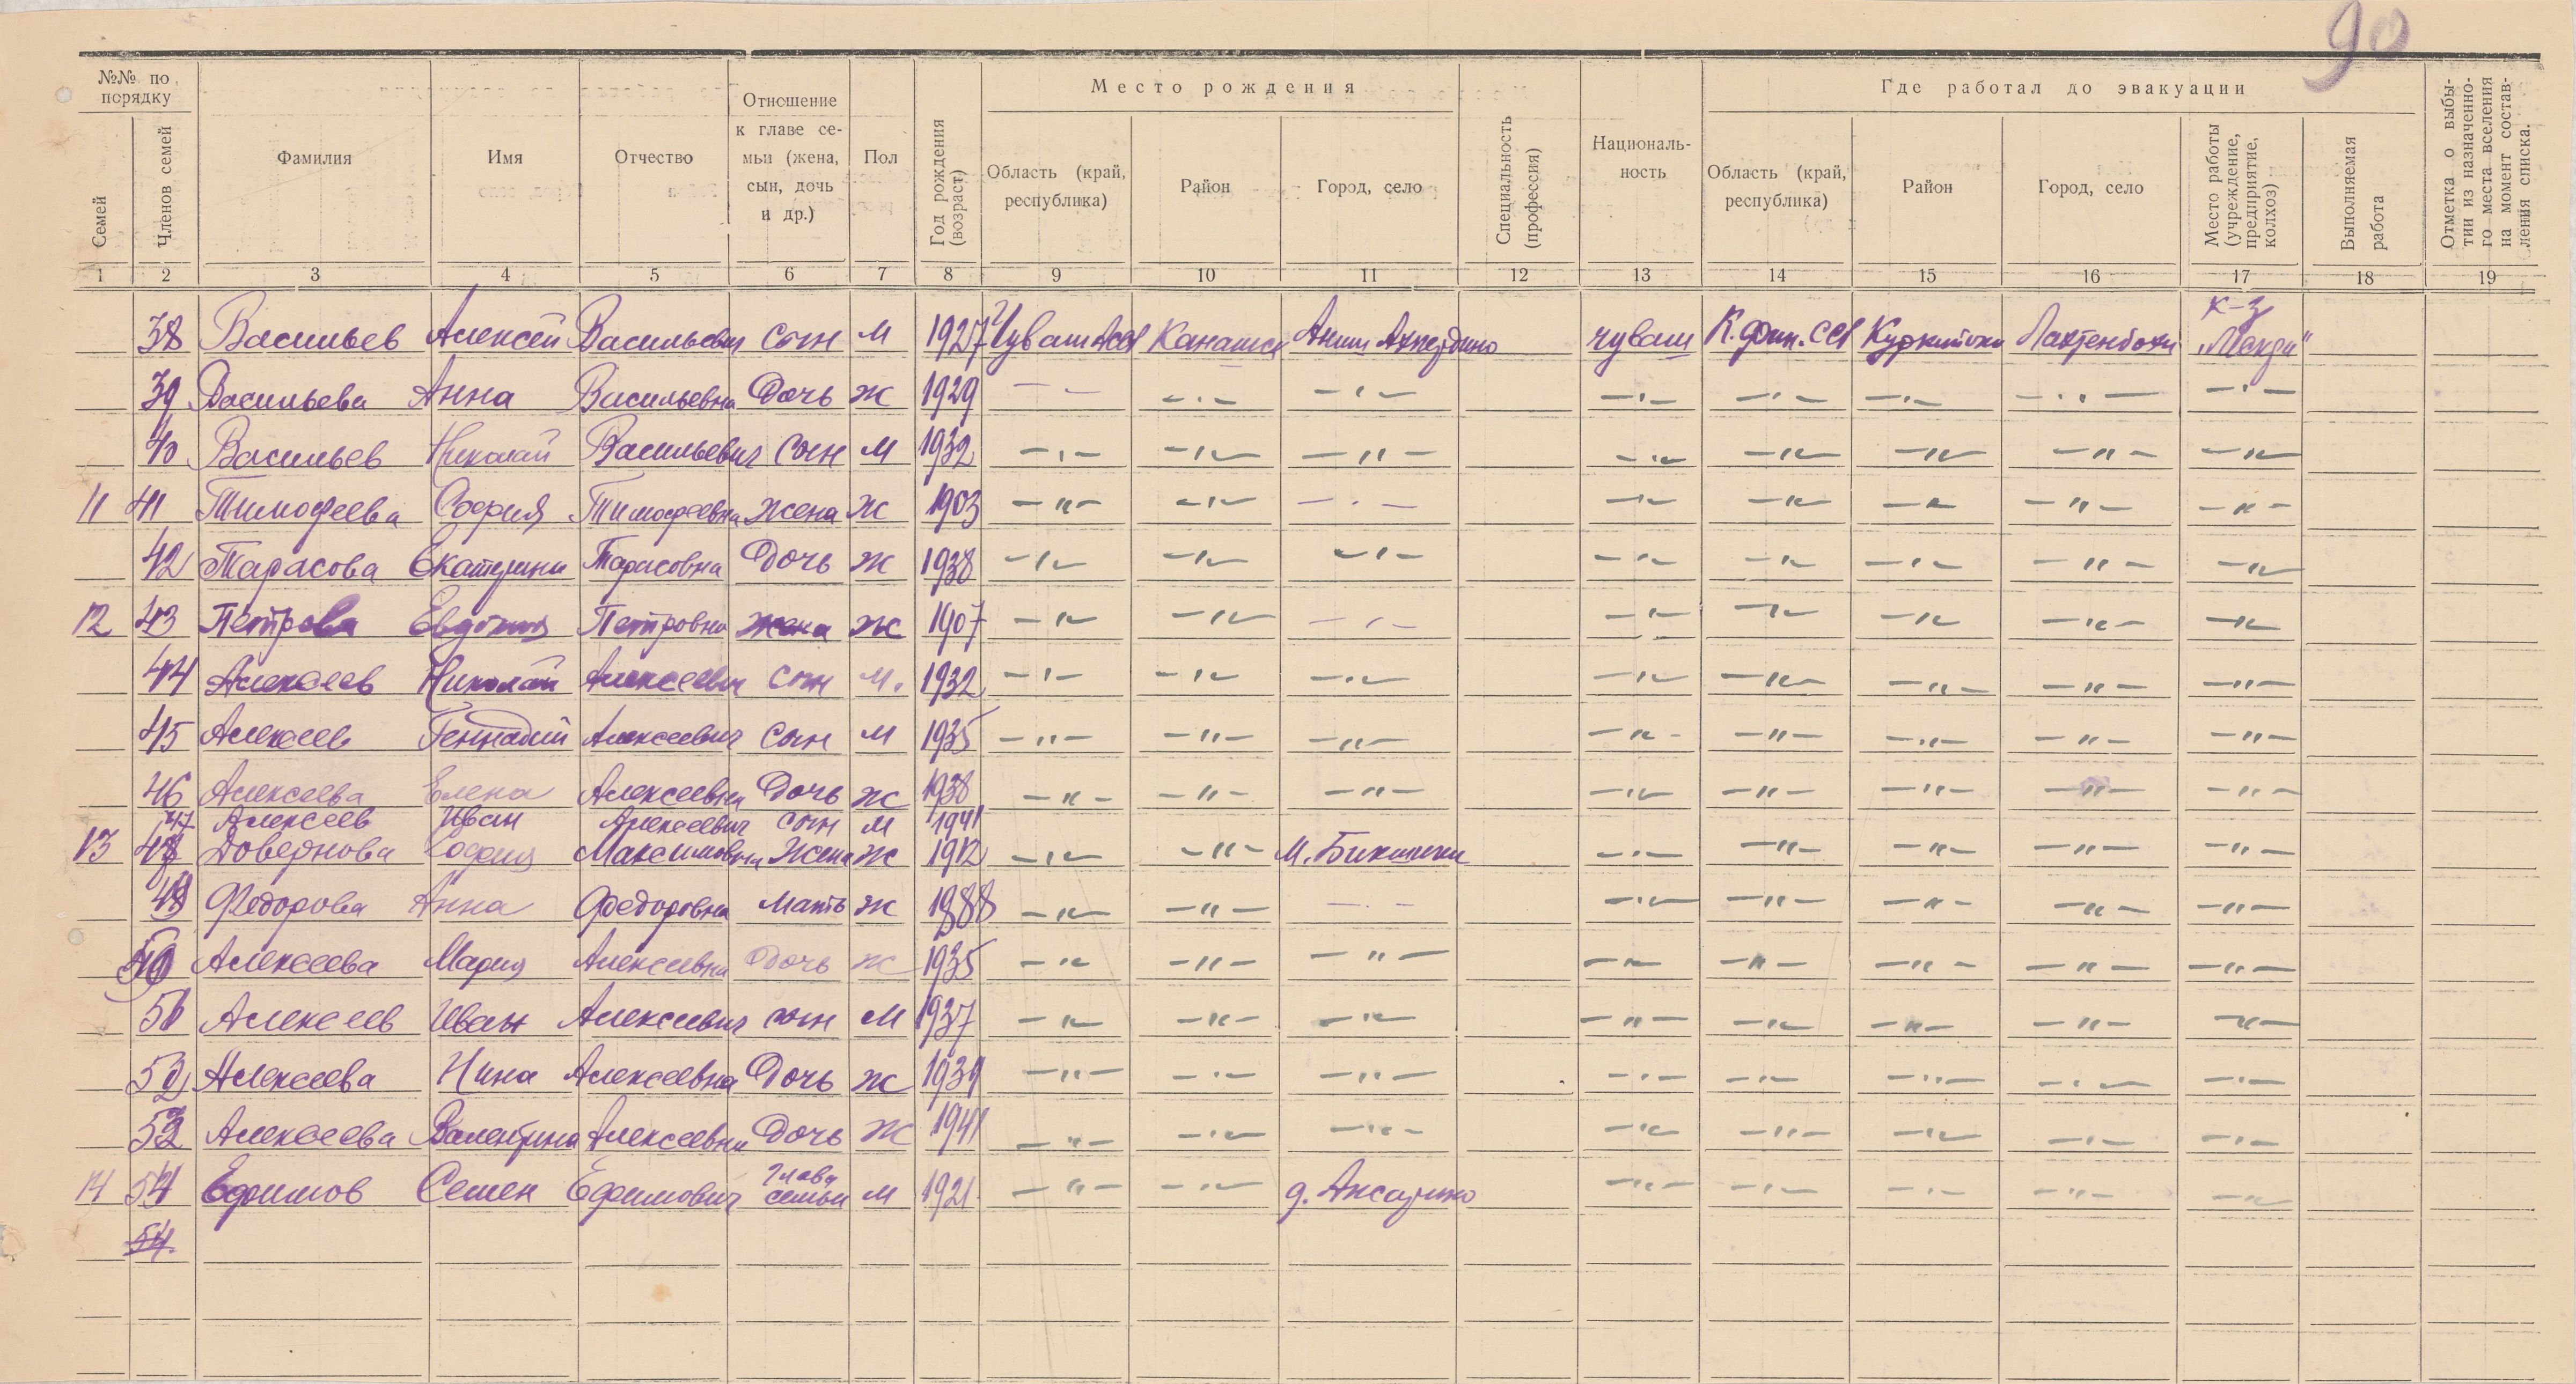 90
№№ по порядку
Место рождения
Где работал до эвакуации
Семей
Членов семей
Фамилия
Имя
Отчество
Отношение к главе семьи (жена, сын, дочь и др.)
Пол
Год рождения (возраст)
Область (край, республика)
Район
Город, село
Специальность (профессия)
Националь-ность
Область (край, республика)
Район
Город, село
Место работы (учреждение, предприятие, колхоз)
Выполняемая работа
Отметка о выбы-тии из назначенно-го места вселения на момент состав-ления списка.
1 2 3 4 5 6 7 8 9 10 11 12 13 14 15 16 17 18 19
38 Васильев Алексей Васильевич сын м 1927 Чуваш АССР Канашск Аниш Ахпердино чуваш К.фин.ССР Куркиёки Лахденпохи к-з
39 Васильева Анна Васильевна Дочь ж 1929
40 Васильев Николай Васильевич сын м 1932 —"— —"— —"— —"— —"— —"— —"— —"—
11 41 Тимофеева София Тимофеевна жена ж 1903 —"— —"— —"— —"— —"— —"— —"— —"—
42 Тарасова Екатерина Тарасовна Дочь ж 1938 —"— —"— —"— —"— —"— —"— —"— —"—
12 43 Петрова Евдокия Петровна жена ж 1907 —"— —"— —"— —"— —"— —"— —"— —"—
44 Алексеев Николай Алексеевич сын м. 1932 —"— —"— —"— —"— —"— —"— —"— —"—
45 Алексеев Геннадий Алексеевич сын м 1935 —"— —"— —"— —"— —"— —"— —"— —"—
46 Алексеева Елена Алексеевна Дочь ж 1938 —"— —"— —"— —"— —"— —"— —"— —"—
47 Алексеев Иван Алексеевич сын м 1941
13 48 Довернова София Максимовна Жена ж 1912 —"— —"— М. Бикшихи —"— —"— —"— —"— —"—
49 Федорова Анна Федоровна мать ж 1888 —"— —"— —"— —"— —"— —"— —"— —"—
50 Алексеева Мария Алексеевна Дочь ж 1935 —"— —"— —"— —"— —"— —"— —"— —"—
51 Алексеев Иван Алексеевич сын м 1937 —"— —"— —"— —"— —"— —"— —"— —"—
52 Алексеева Нина Алексеевна Дочь ж 1939 —"— —"— —"— —"— —"— —"— —"— —"—
53 Алексеева Валентина Алексеевна Дочь ж 1941 —"— —"— —"— —"— —"— —"— —"— —"—
14 54 Ефимов Семен Ефимович глава семьи м 1921 —"— —"— д. Аксарино —"— —"— —"— —"— —"—
54.